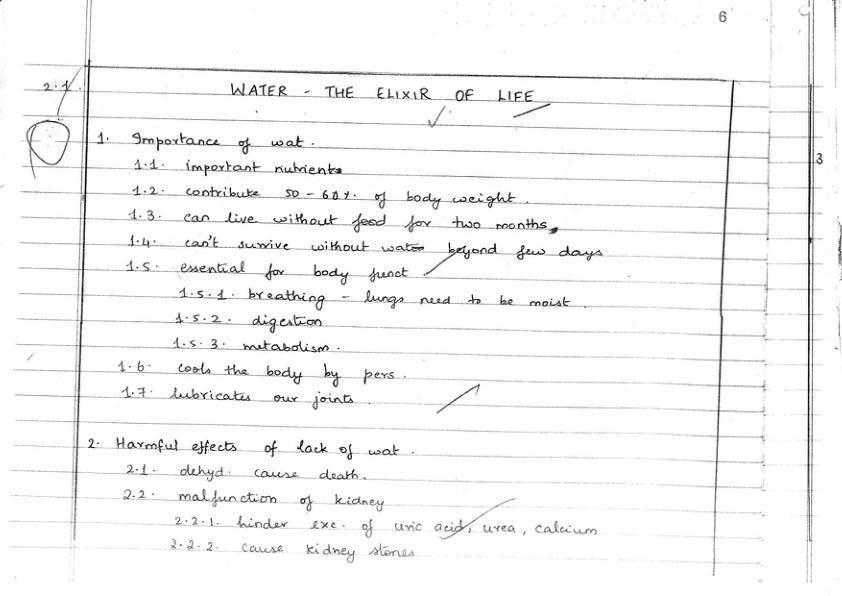 6
2.1.
WATER - THE ELIXIR OF LIFE
3
1. Importance of wat.
1.1. important nutrients
1.2. contribute 50-60%. of body weight.
1.3. can live without food for two months,
1.4. can't survive without wat beyond few days
1.5. essential for body funct
1.5.1. breathing - lungs need to be moist.
1.5.2. digestion
1.5.3. metabolism.
1.6. cools the body by pers.
1.7. lubricates our joints.
2. Harmful effects of lack of wat.
2.1. dehyd. cause death.
2.2. malfunction of kidney
2.2.1. hinder exc. of uric acid, urea, calcium
2.2.2. cause kidney stones